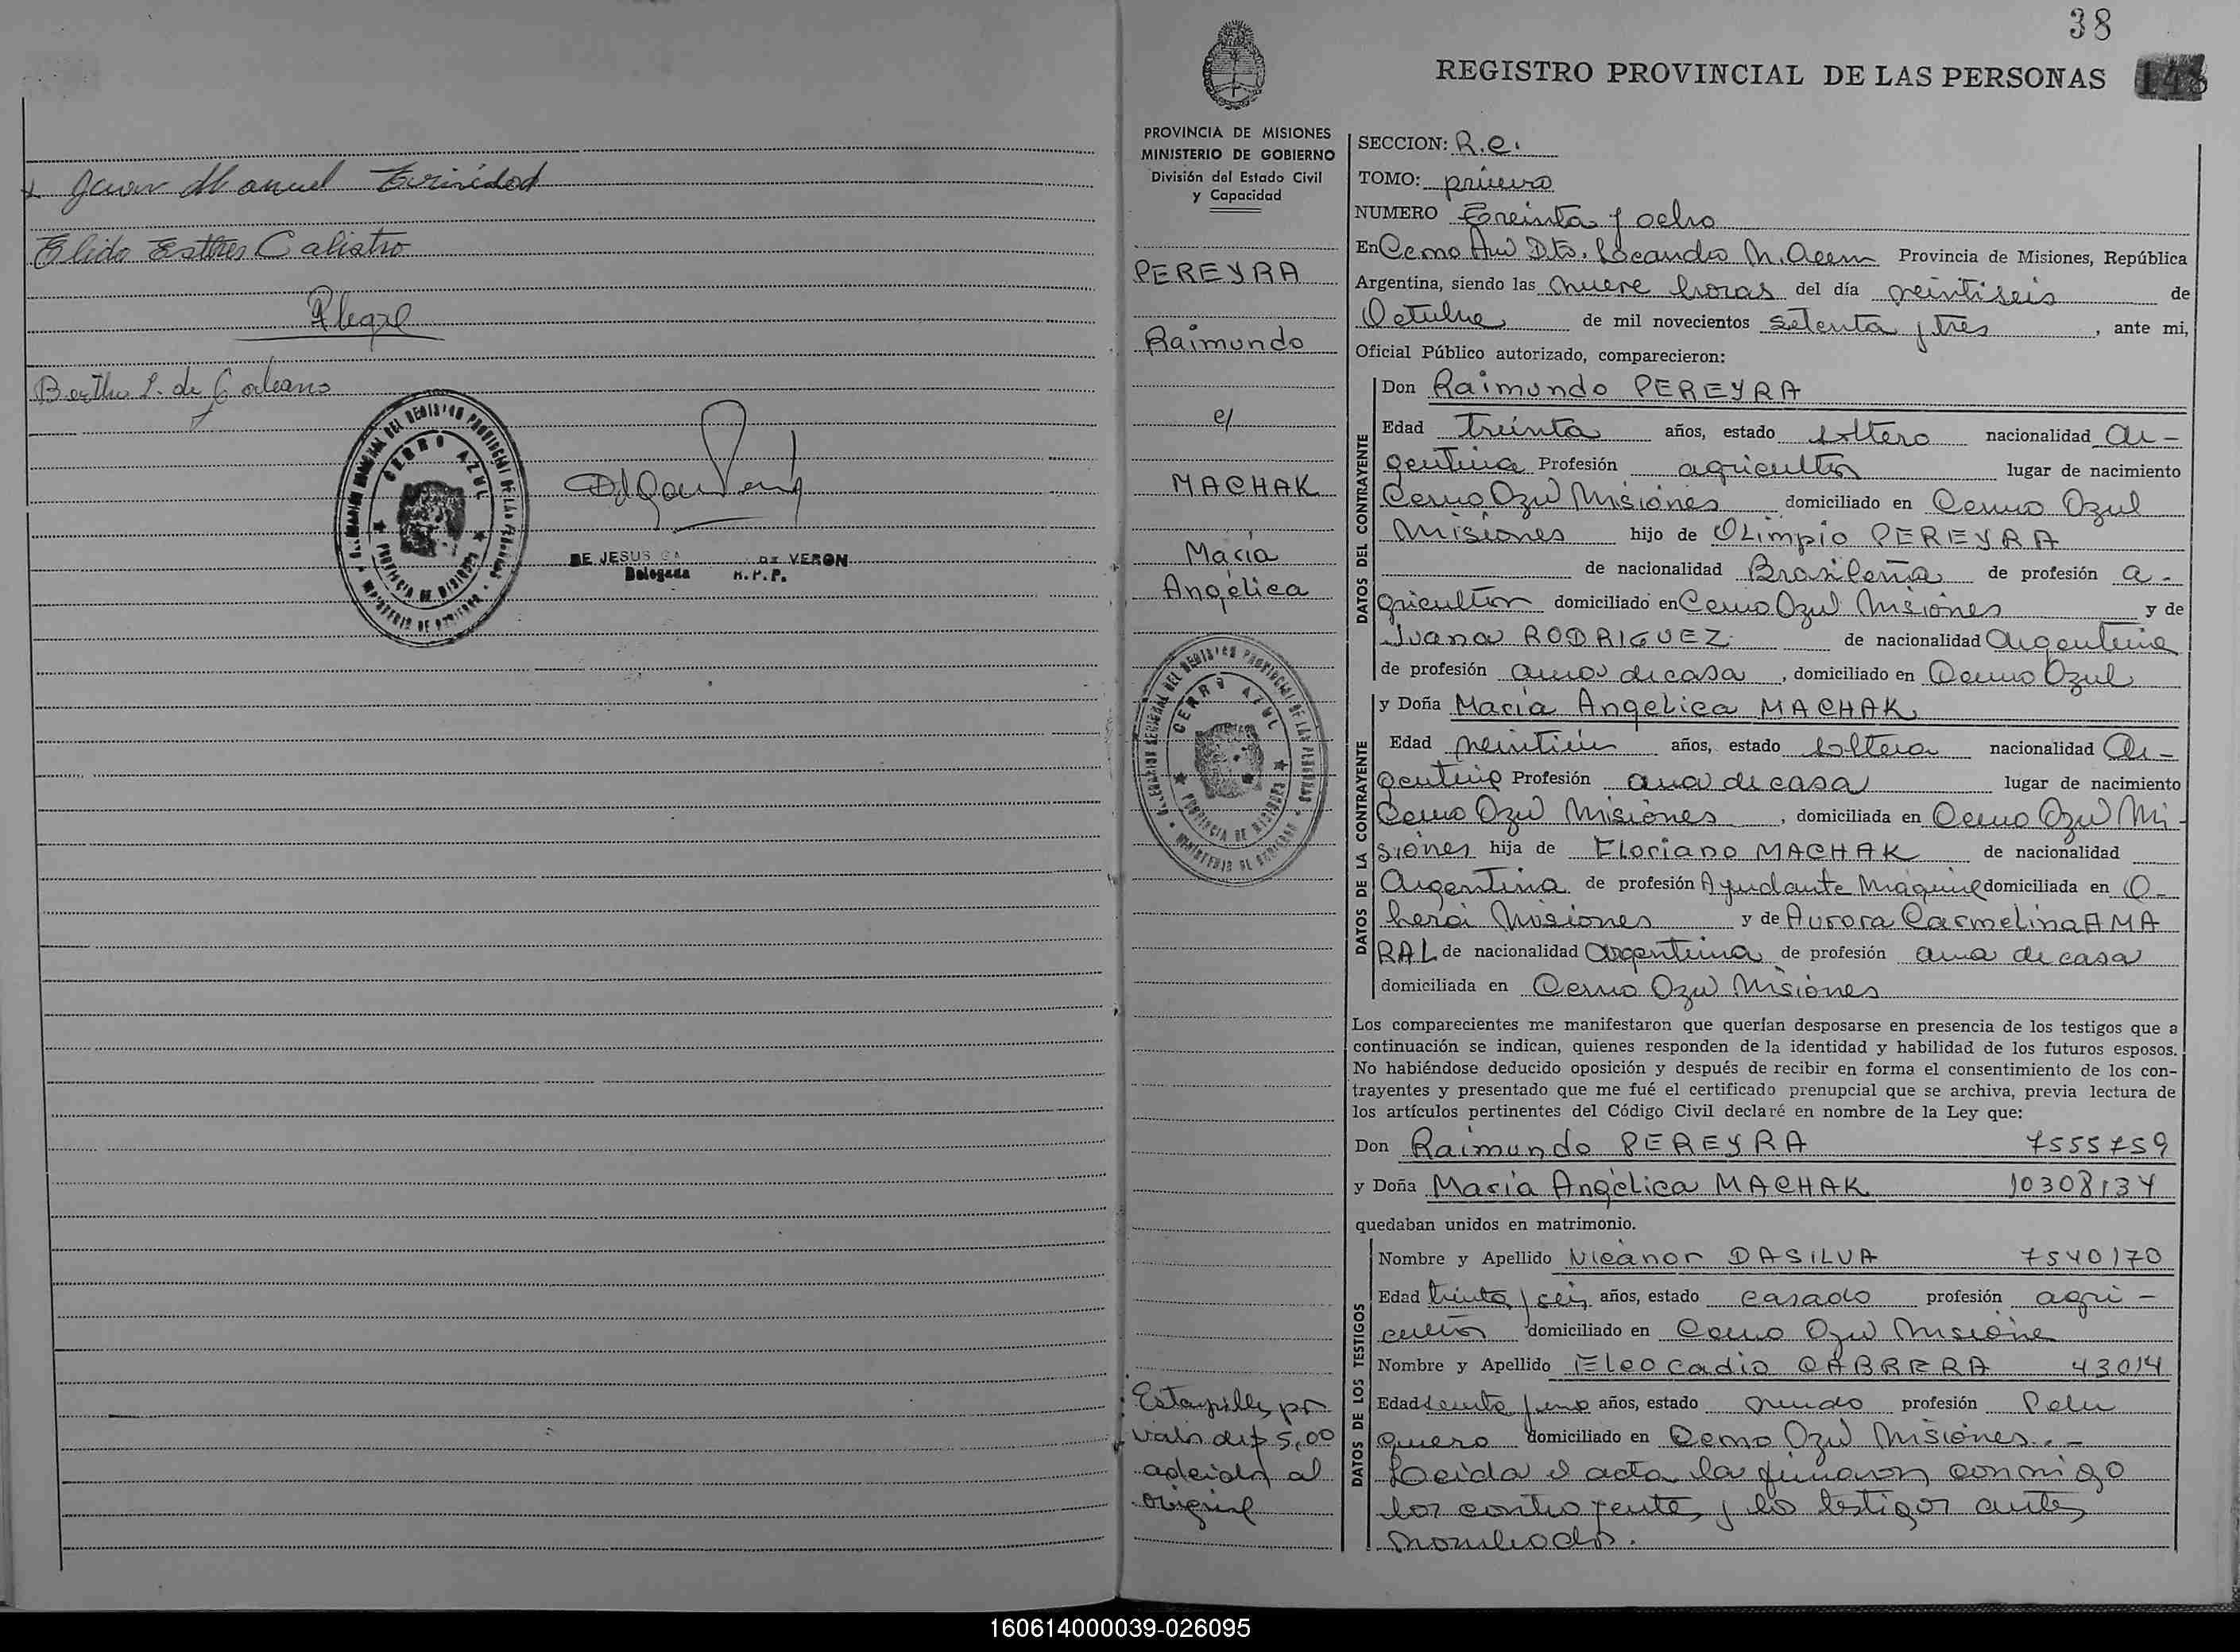 Juan Manuel Trinidad
Elido Esther Calistro
Alegre
Bertha L. de Galeano
DELEGACION SEGCIONAL DEL REGISTRO PROVINCIAL DE LAS PERSONAS
CERRO AZUL
PROVINCIA DE MISIONES
MINISTERIO DE GOBIERNO
DE JESUS DE VERON
Delegada R.P.P.
38
REGISTRO PROVINCIAL DE LAS PERSONAS 148
PROVINCIA DE MISIONES
MINISTERIO DE GOBIERNO
División del Estado Civil
y Capacidad
PEREYRA
Raimundo
c/
MACHAK
María
Angélica
CERRO AZUL
PROVINCIA DE MISIONES
MINISTERIO DE GOBIERNO
Estampillas por
valor de $ 5,00
adherida al
original
SECCION: R.C.
TOMO: primero
NUMERO Treinta y ocho
En Cerro Azul Dto. Leandro N. Alem Provincia de Misiones, República
Argentina, siendo las nueve horas del día veintiseis de
Octubre de mil novecientos setenta y tres, ante mi,
Oficial Público autorizado, comparecieron:
DATOS DEL CONTRAYENTE
Don Raimundo PEREYRA
Edad treinta años, estado soltero nacionalidad Ar-
gentina Profesión agricultor lugar de nacimiento
Cerro Azul Misiones domiciliado en Cerro Azul
Misiones hijo de OLimpio PEREYRA
de nacionalidad Brasileña de profesión a-
gricultor domiciliado en Cerro Azul Misiones y de
Juana RODRIGUEZ de nacionalidad Argentina
de profesión ama de casa, domiciliado en Cerro Azul
DATOS DE LA CONTRAYENTE
y Doña María Angelica MACHAK
Edad veintiún años, estado soltera nacionalidad Ar-
gentina Profesión ama de casa lugar de nacimiento
Cerro Azul Misiones, domiciliada en Cerro Azul Mi-
siones hija de Floriano MACHAK de nacionalidad
Argentina de profesión Ayudante Maquina domiciliada en O-
berá Misiones y de Aurora Carmelina AMA
RAL de nacionalidad Argentina de profesión ama de casa
domiciliada en Cerro Azul Misiones
Los comparecientes me manifestaron que querían desposarse en presencia de los testigos que a
continuación se indican, quienes responden de la identidad y habilidad de los futuros esposos.
No habiéndose deducido oposición y después de recibir en forma el consentimiento de los con-
trayentes y presentado que me fué el certificado prenupcial que se archiva, previa lectura de
los artículos pertinentes del Código Civil declaré en nombre de la Ley que:
Don Raimundo PEREYRA 7555759
y Doña María Angélica MACHAK 10308134
quedaban unidos en matrimonio.
DATOS DE LOS TESTIGOS
Nombre y Apellido Nicanor DASILVA 7540170
Edad treinta y seis años, estado casado profesión agri-
cultor domiciliado en Cerro Azul Misione
Nombre y Apellido Eleocadio CABRERA 43014
Edad sesenta y uno años, estado viudo profesión Pelu
quero domiciliado en Cerro Azul Misiones.-
Leeida el acta la firmaron conmigo
los contrayentes y los testigos antes
nombrados.
160614000039-026095